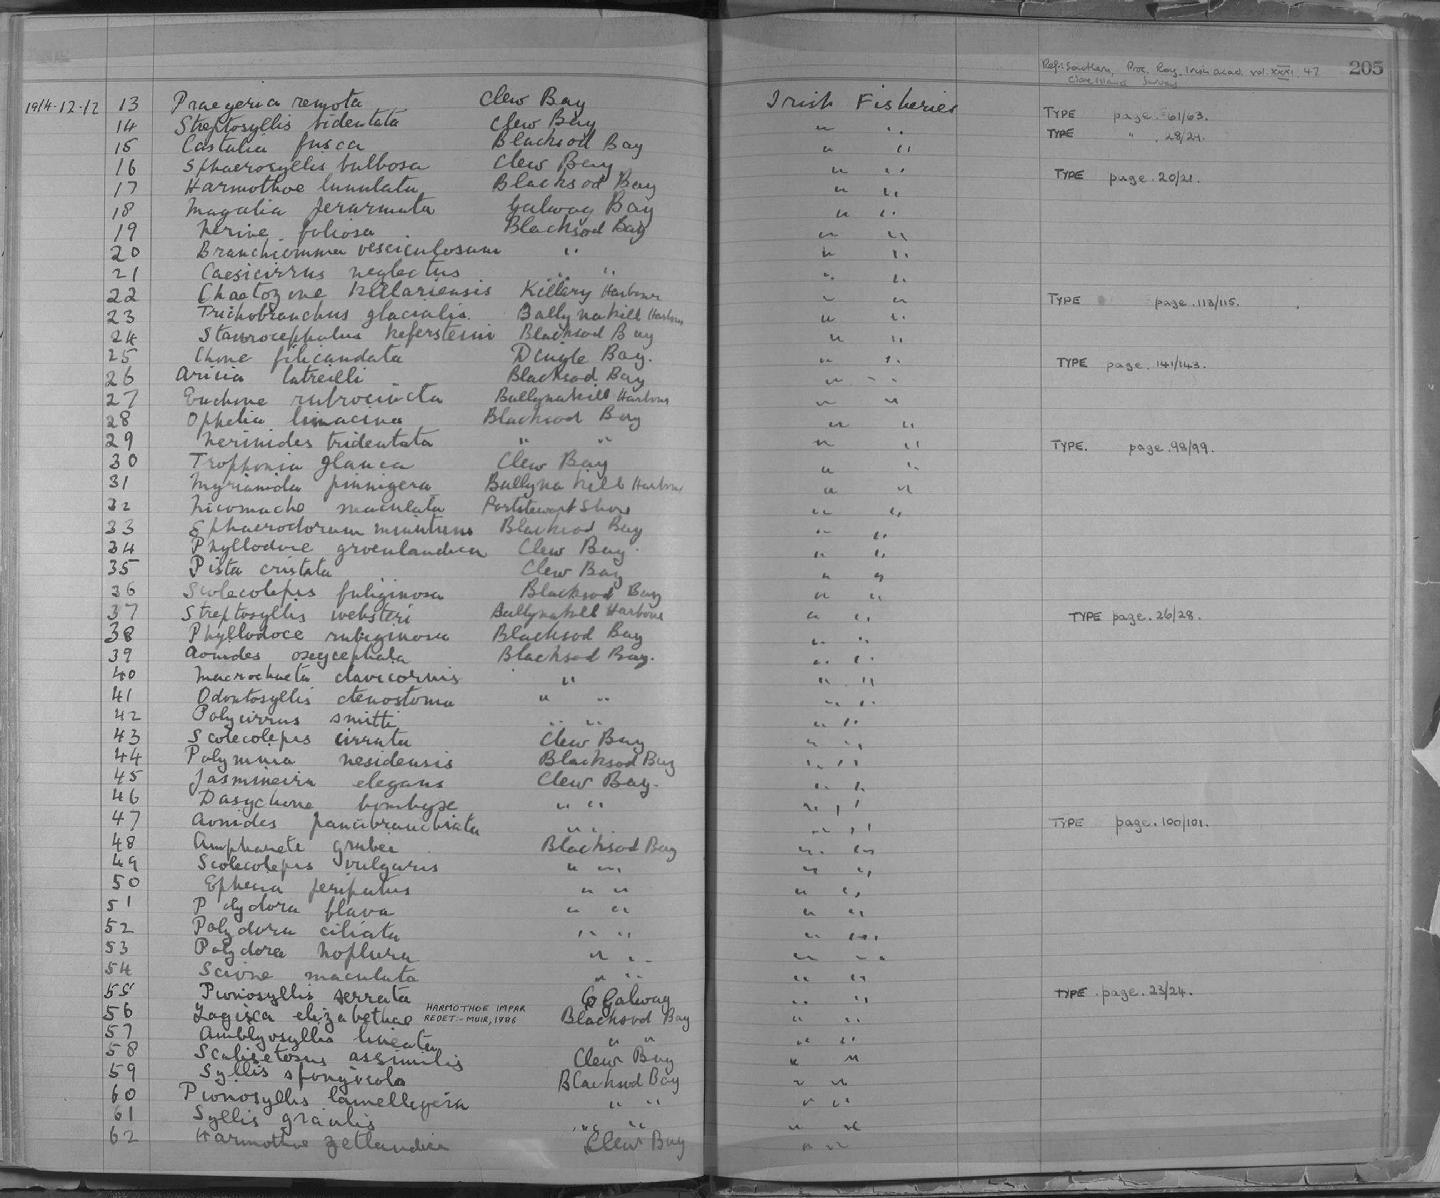 Ref: Southern, Proc. Roy. Irish Acad. vol. XXXI 47 205
Clare Island Survey
1914-12-12 13 Praegeria remota Clew Bay Irish Fisheries TYPE page. 61/63.
14 Streptosyllis bidentata Clew Bay " " TYPE " . 28/29.
15 Castalia fusca Blacksod Bay " "
16 Sphaerosyllis bulbosa Clew Bay " " TYPE page. 20/21.
17 Harmothoe lunulata Blacksod Bay " "
18 Magalia perarmata Galway Bay " "
19 Nerine foliosa Blacksod Bay " "
20 Branchiomma vesciculosum " " "
21 Caesicirrus neglectus " " " "
22 Chaetozone killariensis Killary Harbour " " TYPE page. 113/115.
23 Trichobranchus glacialis Ballynakill Harbour " "
24 Staurocephalus kefersteini Blacksod Bay " "
25 Chone filicaudata Dingle Bay. " " TYPE page. 141/143.
26 Aricia latreilli Blacksod Bay " "
27 Euchone rubrocincta Ballynakill Harbour " "
28 Ophelia limacina Blacksod Bay " "
29 Nerinides tridentata " " " " TYPE. page. 98/99.
30 Trophonia glauca Clew Bay " "
31 Myrianida pinnigera Ballynakill Harbour " "
32 Nicomache maculata Portstewart Shore " "
33 Sphaerodorum minutum Blacksod Bay " "
34 Phyllodoce groenlandica Clew Bay " "
35 Pista cristata Clew Bay " "
36 Scolecolepis fuliginosa Blacksod Bay " "
37 Streptosyllis websteri Ballynakill Harbour " " TYPE page. 26/28.
38 Phyllodoce rubiginosa Blacksod Bay " "
39 Aonides oxycephala Blacksod Bay. " "
40 Macrochaeta clavicornis " " "
41 Odontosyllis ctenostoma " " " "
42 Polycirrus smitti " " " "
43 Scolecolepis cirrata Clew Bay " "
44 Polymnia nesidensis Blacksod Bay " "
45 Jasmineira elegans Clew Bay. " "
46 Dasychone bombyx " " " "
47 Aonides paucibranchiata " " " " TYPE page. 100/101.
48 Ampharete gruber Blacksod Bay " "
49 Scolecolepis vulgaris " " " "
50 Ephesia peripatus " " " "
51 Polydora flava " " " "
52 Polydora ciliata " " " "
53 Polydora hoplura " " " "
54 Scione maculata " " " "
55 Pionosyllis serrata Co Galway " " TYPE page. 23/24.
56 Lagisca elizabethae HARMOTHOE IMPAR Blacksod Bay " "
REDET.- MUIR, 1986
57 Amblyosyllis lineata " " " "
58 Scalisetosus assimilis Clew Bay " "
59 Syllis spongicola Blacksod Bay " "
60 Pionosyllis lamelligera " " " "
61 Syllis gracilis " " " "
62 Harmothoe zetlandica Clew Bay " "